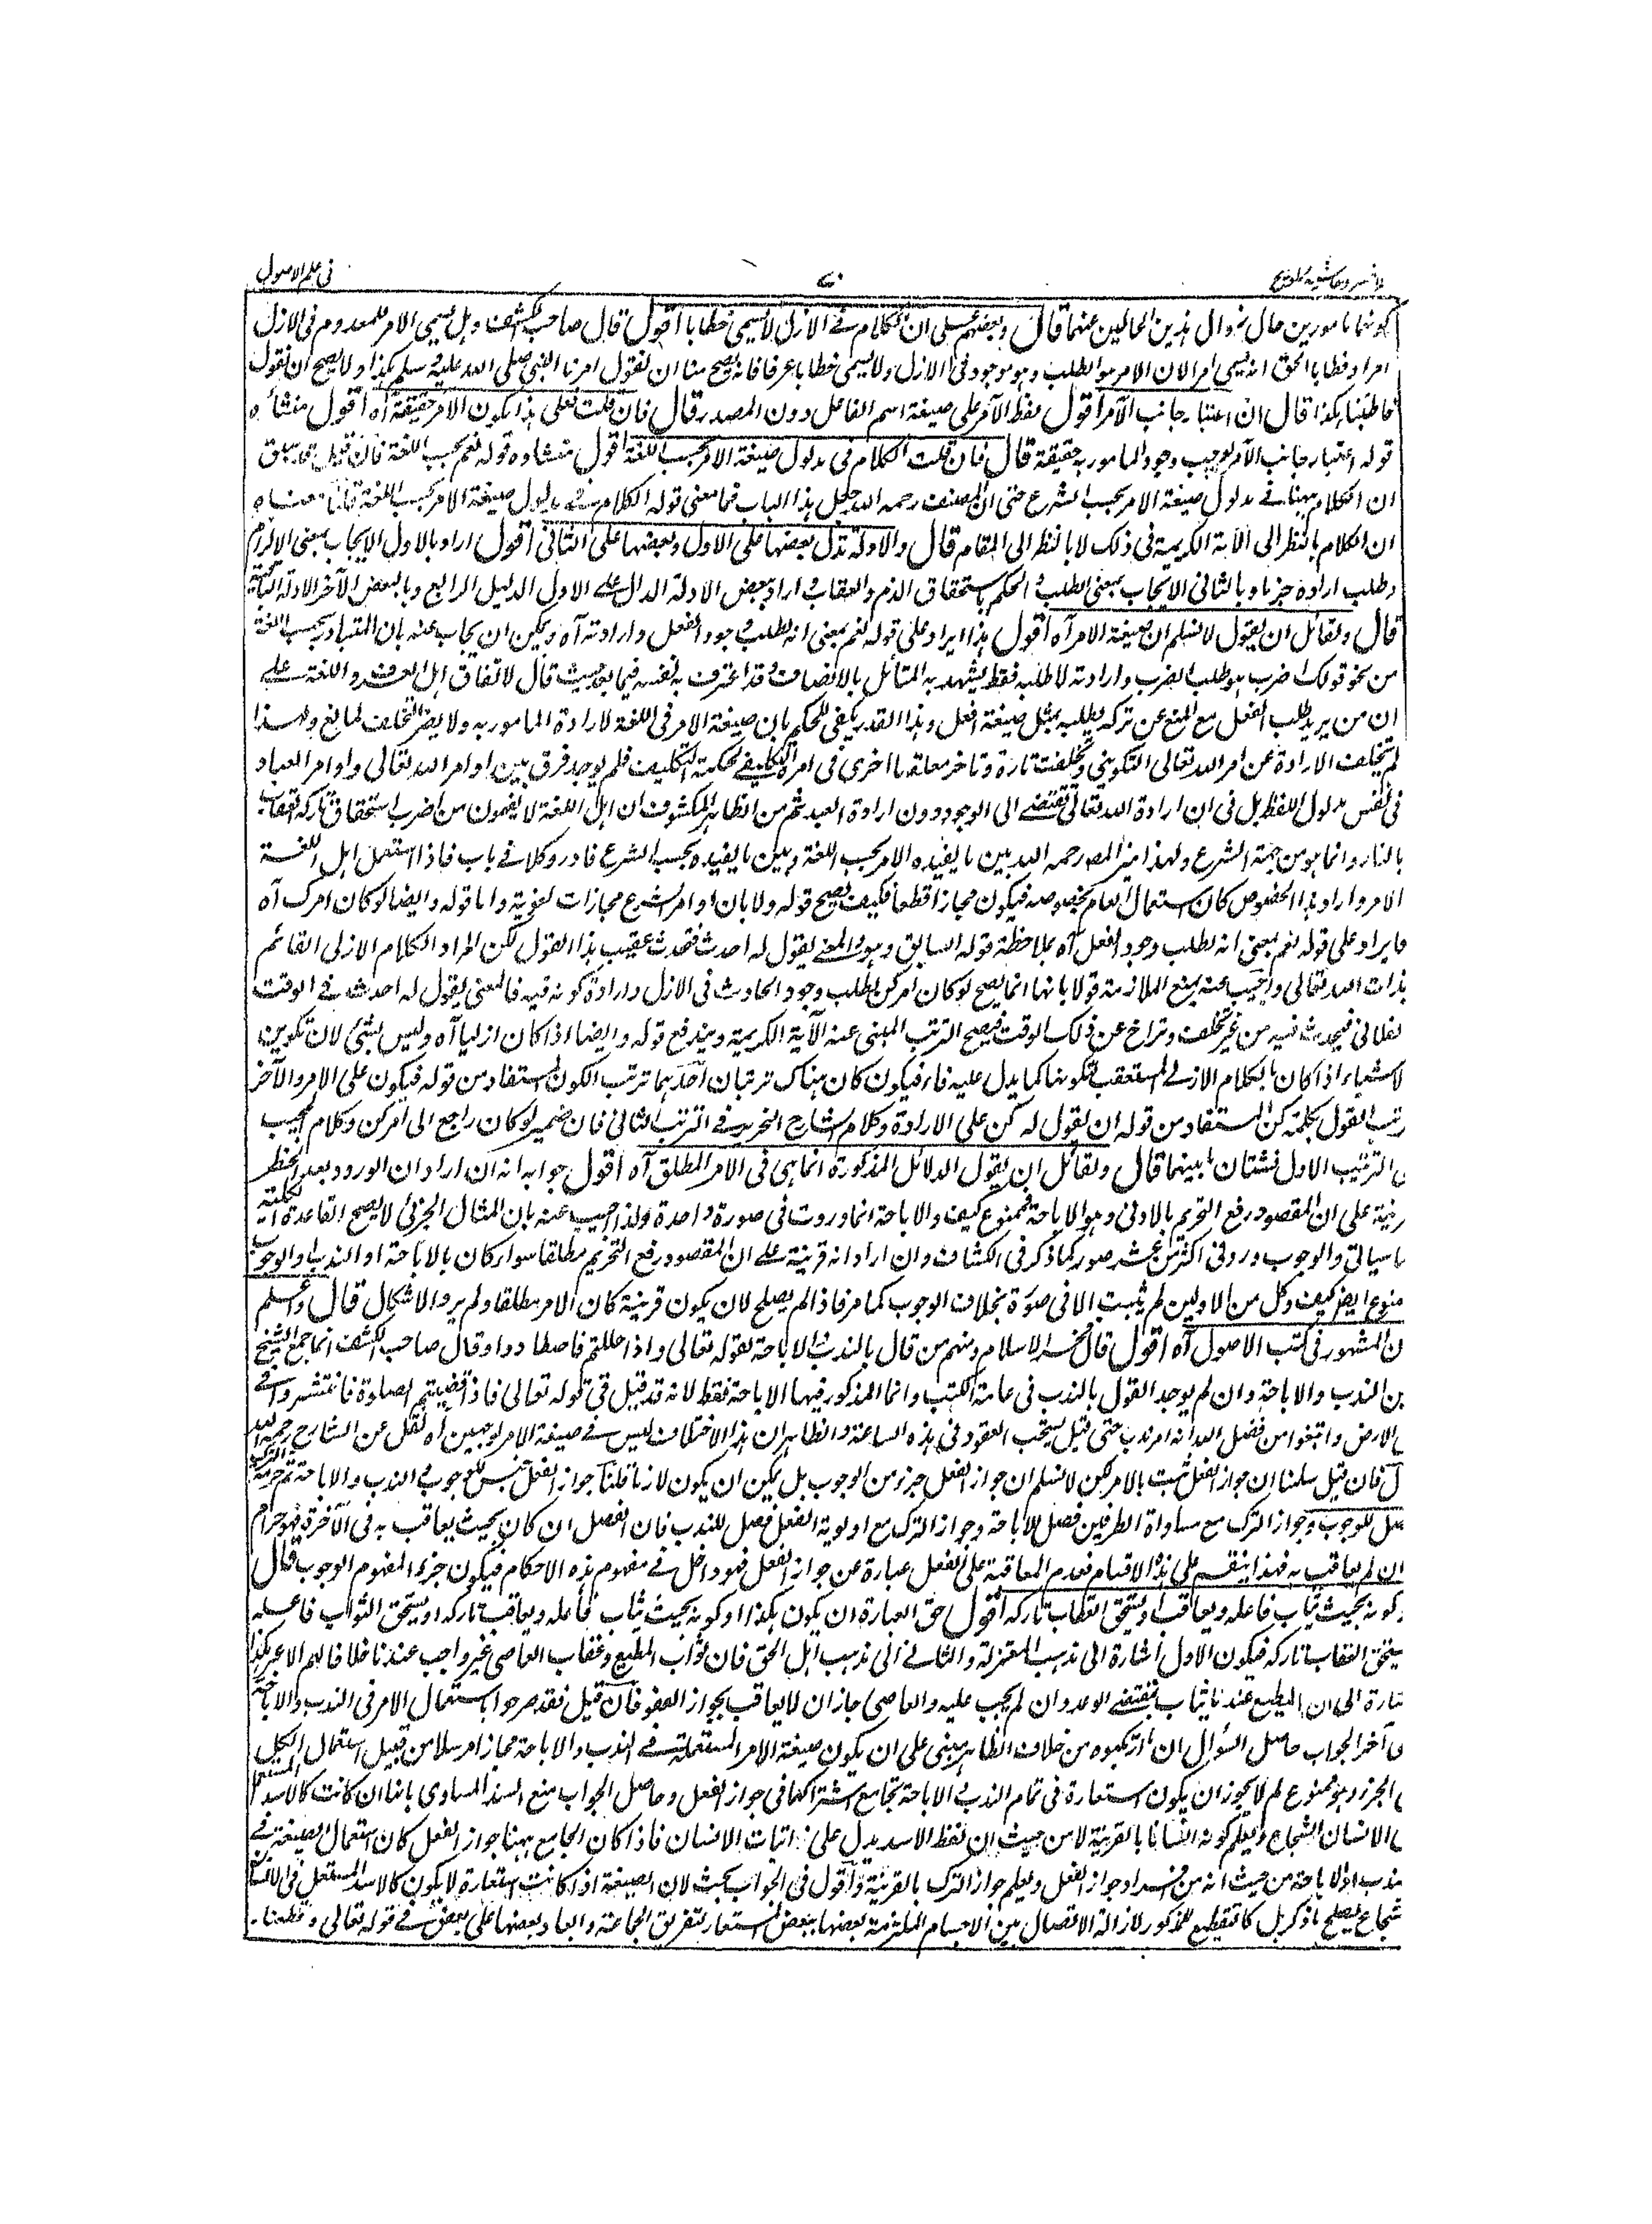 ملا خسرو حاشية تلويح ٧٠ فى علم الاصول
كونهما مامورين حال زوال هذين الحالين عنهما قال وبعضهم على ان الكلام فى الازل لا يسمى خطابا اقول قال صاحب الكشف وهل يسمى الامر للمعدوم فى الازل
امرا وخطابا الحق انه يسمى امرا لان الامر هو الطلب وهو موجود فى الازل ولا يسمى خطابا عرفا فانه يصح منا ان نقول امرنا النبى صلى الله عليه وسلم بكذا ولا يصح ان نقول
خاطبنا بكذا قال ان اعتبار جانب الآمر اقول لفظ الآمر على صيغة اسم الفاعل دون المصدر قال فان قلت فعلى هذا يكون الامر حقيقة آه اقول منشاه
قوله اعتبار جانب الآمر يوجب وجود المامور به حقيقة قال فان قلت الكلام فى مدلول صيغة الامر بحسب اللغة اقول منشاوه قوله نعم بحسب اللغة فان قيل قد سبق
ان الكلام ههنا فى مدلول صيغة الامر بحسب الشرع حتى ان المصنف رحمه الله جعل هذا الباب فما معنى قوله الكلام فى مدلول صيغة الامر بحسب اللغة قلنا معناه
ان الكلام بالنظر الى الآية الكريمة فى ذلك لا بالنظر الى المقام قال والادلة تدل بعضها على الاول وبعضها على الثانى اقول اراد بالاول الايجاب بمعنى الالزام
وطلب اراده جزما وبالثانى الايجاب بمعنى الطلب والحكم باستحقاق الذم والعقاب واراد ببعض الادلة الدال على الاول الدليل الرابع وبالبعض الآخر الادلة الثلثة
قال ولقائل ان يقول لا نسلم ان صيغة الامر آه اقول هذا ايراد على قوله نعم بمعنى انه لطلب وجود الفعل وارادته آه ويمكن ان يجاب عنه بان المتبادر بحسب اللغة
من نحو قولك اضرب هو طلب الضرب وارادته لا طلبه فقط يشهد به المتامل بالانصاف وقد اعترف به نفسه فيما بعد حيث قال لاتفاق اهل العرف واللغة على
ان من يريد طلب الفعل مع المنع عن تركه يطلبه بمثل صيغة افعل وهذا القدر يكفى للحكم بان صيغة الامر فى اللغة لارادة المامور به ولا يضر التخلف لمانع ولهذا
لم تتخلف الارادة عن امر الله تعالى التكوينى وتخلفت تارة وتاخر معلقها اخرى فى امره التكليفى لحكمة التكليف فلم يوجد فرق بين اوامر الله تعالى واوامر العباد
فى نفس مدلول اللفظ بل فى ان ارادة الله تعالى تفضى الى الوجود دون ارادة العبد ثم من الظاهر المكشوف ان اهل اللغة لا يفهمون من اضرب استحقاق تاركه العقاب
بالنار وانما هو من جهة الشرع ولهذا ميز المصـ رحمه الله بين ما يفيده الامر بحسب اللغة وبين ما يفيده بحسب الشرع فادر وكلا فى باب فاذا استعمل اهل اللغة
الامر واراد هذا الخصوص كان استعمال العام بخصوصه فيكون مجازا قطعا فكيف يصح قوله ولا بان اوامر الشرع مجازات لغوية واما قوله وايضا لو كان امر كن آه
فايراد على قوله نعم بمعنى انه لطلب وجود الفعل آه بملاحظة قوله السابق وهو المعنى يقول له احدث فتحدث عقيب هذا القول لكن المراد الكلام الازلى القائم
بذات الله تعالى واجيب عنه بمنع الملازمة قولا بانها انما يصح لو كان امر كن لطلب وجود الحادث فى الازل وارادة كونه فيه فالمعنى يقول له احدث فى الوقت
الفلانى فيحدث فيه من غير تخلف وتراخ عن ذلك الوقت فيصح الترتب المبنى عنه الآية الكريمة ويندفع قوله وايضا اذا كان ازليا آه وليس بشئ لان تكوين
الاشياء اذا كان بالكلام الازلى المستعقب لكونها كما يدل عليه فاء فيكون كان هناك ترتبان احدهما ترتب الكون المستفاد من قوله فيكون على الامر والآخر
ترتب القول بكلمة كن المستفاد من قوله ان يقول له كن على الارادة وكلام الشارح النحرير فى الترتب الثانى فان ضمير لو كان راجع الى امر كن وكلام المجيب
فى الترتيب الاول فشتان ما بينهما قال ولقائل ان يقول الدلائل المذكورة انما هى فى الامر المطلق آه اقول جوابه انه ان اراد ان الورود بعد الحظر
قرينة على ان المقصود رفع التحريم بالادنى وهو الاباحة فممنوع كيف والاباحة انما وردت فى صورة واحدة ولذا اجيب عنه بان المثال الجزئى لا يصح القاعدة الكلية
كما سياتى والوجوب ورد فى اكثر من عشر صور كما ذكر فى الكشاف وان اراد انه قرينة على ان المقصود رفع التحريم مطلقا سواء كان بالاباحة او الندب او الوجوب
فممنوع ايضا كيف وكل من الاولين لم يثبت الا فى صورة بخلاف الوجوب كما مر فاذا لم يصلح لان يكون قرينة كان الامر مطلقا ولم يرد الاشكال قال واعلم
ان المشهور فى كتب الاصول آه اقول قال فخر الاسلام ومنهم من قال بالندب والاباحة لقوله تعالى واذا حللتم فاصطادوا وقال صاحب الكشف انما جمع الشيخ
بين الندب والاباحة وان لم يوجد القول بالندب فى عامة الكتب وانما المذكور فيها الاباحة فقط لانه قد قيل فى قوله تعالى فاذا قضيتم الصلوة فانتشروا فى
الارض وابتغوا من فضل الله انه امر ندب حتى قيل يستحب العقود فى هذه الساعة والظاهر ان هذا الاختلاف ليس فى صيغة الامر لوجهين آه نقل عن الشارح رحمه الله
قال فان قيل سلمنا ان جواز الفعل ثبت بالامر لكن لا نسلم ان جواز الفعل جزء من الوجوب بل يمكن ان يكون لازما قلنا جواز الفعل جنس للوجوب والندب والاباحة ثم حرمة الترك
فصل للوجوب وجواز الترك مع مساواة الطرفين فصل للاباحة وجواز الترك مع اولوية الفعل فصل للندب فان الفصل ان كان بحيث يعاقب به فى الآخرة فهو حرام
وان لم يعاقب به فهذا ينقسم على هذه الاقسام فعدم المعاقبة على الفعل عبارة عن جواز الفعل فهو داخل فى مفهوم هذه الاحكام فيكون جزءا لمفهوم الوجوب قال
وكونه بحيث يثاب فاعله ويعاقب او يستحق العقاب تاركه اقول حق العبارة ان يكون هكذا او كونه بحيث يثاب فاعله ويعاقب تاركه او يستحق الثواب فاعله
ويستحق العقاب تاركه فيكون الاول اشارة الى مذهب المعتزلة والثانى الى مذهب اهل الحق فان ثواب المطيع وعقاب العاصى غير واجب عندنا خلافا لهم الا عبر هكذا
اشارة الى ان المطيع عندنا يثاب بمقتضى الوعد وان لم يجب عليه والعاصى جاز ان لا يعاقب بجواز العفو فان قيل فقد صرحوا باستعمال الامر فى الندب والاباحة
الى آخر الجواب حاصل السؤال ان ما ارتكبوه من خلاف الظاهر مبنى على ان يكون صيغة الامر المستعملة فى الندب والاباحة مجازا مرسلا من قبيل استعمال الكل
فى الجزء وهو ممنوع لم لا يجوز ان يكون استعارة فى تمام الندب والاباحة بجامع اشتراكهما فى جواز الفعل وحاصل الجواب منع السند المساوى بانها ان كانت كالاسد المستعمل
فى الانسان الشجاع ويعلم كونه انسانا بالقرينة لا من حيث ان لفظ الاسد يدل على اثبات الانسان فاذا كان الجامع ههنا جواز الفعل كان استعمال الصيغة فى
الندب او الاباحة من حيث انه من افراد جواز الفعل ويعلم جواز الترك بالقرينة واقول فى الجواب بحث لان الصيغة اذا كانت استعارة لا يكون كالاسد المستعمل فى الانسان
الشجاع ليصلح ما ذكر بل كالتقطيع المذكور لازالة الاتصال بين الاجسام الملتزمة بعضها ببعض المستعار لتفريق الجماعة وابعاد بعضها على بعض فى قوله تعالى وقطعنا